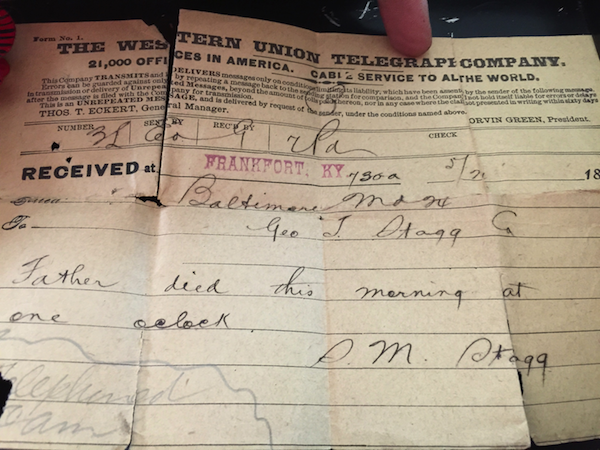 Form No. 1.
THE WESTERN UNION TELEGRAPH COMPANY.
21,000 OFFICES IN AMERICA. CABLE SERVICE TO ALL THE WORLD.
This Company TRANSMITS and DELIVERS messages only on conditions limiting its liability, which have been by the sender of the following message.
Errors can be guarded against only by repeating a message back to the sending station for comparison, and the Company not hold itself liable for errors or delays
in transmission or delivery of Unrepeated Messages, beyond the amount of nor in any case where the claim not presented in writing within sixty days
after the message is filed with the Company for transmission.
This is an UNREPEATED MESSAGE, and is delivered by request of the sender, under the conditions named above.
THOS T. ECKERT, General Manager.
ORVIN GREEN, President.
NUMBER SENT BY REC'D BY CHECK
RECEIVED at FRANKFORT, KY 730a 18
Baltimore Md
To Geo T. Stagg Co
Father died this morning at
one oclock.
S. M. Stagg